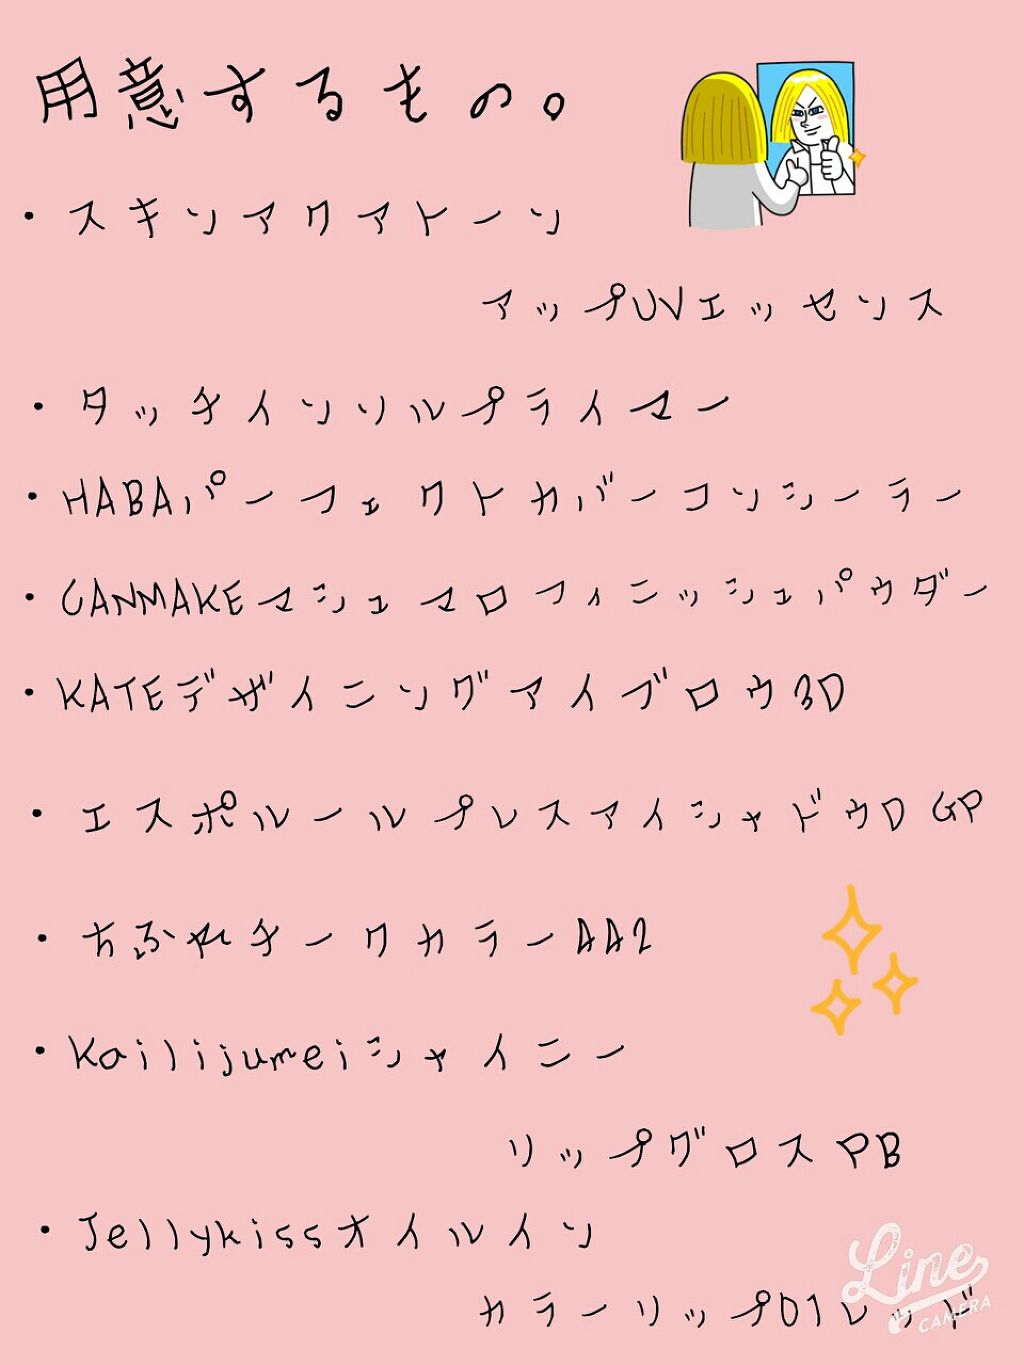 用意するもの。
・スキンアクアトーン
アップUVエッセンス
・タッチインソルプライマー
・HABAパーフェクトカバーコンシーラー
・CANMAKEマシュマロフィニッシュパウダー
・KATEデザイニングアイブロウ3D
・エスポルールプレスアイシャドウD GP
・ちふれチークカラーAA2
・Kailijumeiシャイニー
リップグロスPB
・Jellykissオイルイン
カラーリップ01レッド
Line
CAMERA